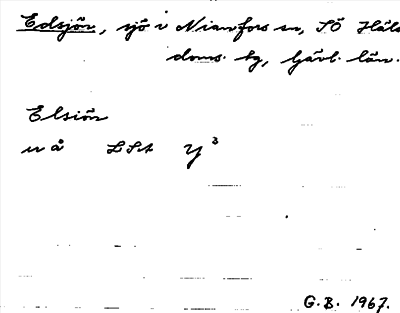 Edsjön, sjö i Nianfors sn, SÖ Häls
doms. bg, Gävl. län.
Elsiön
n å LSA y³
G.B. 1967.